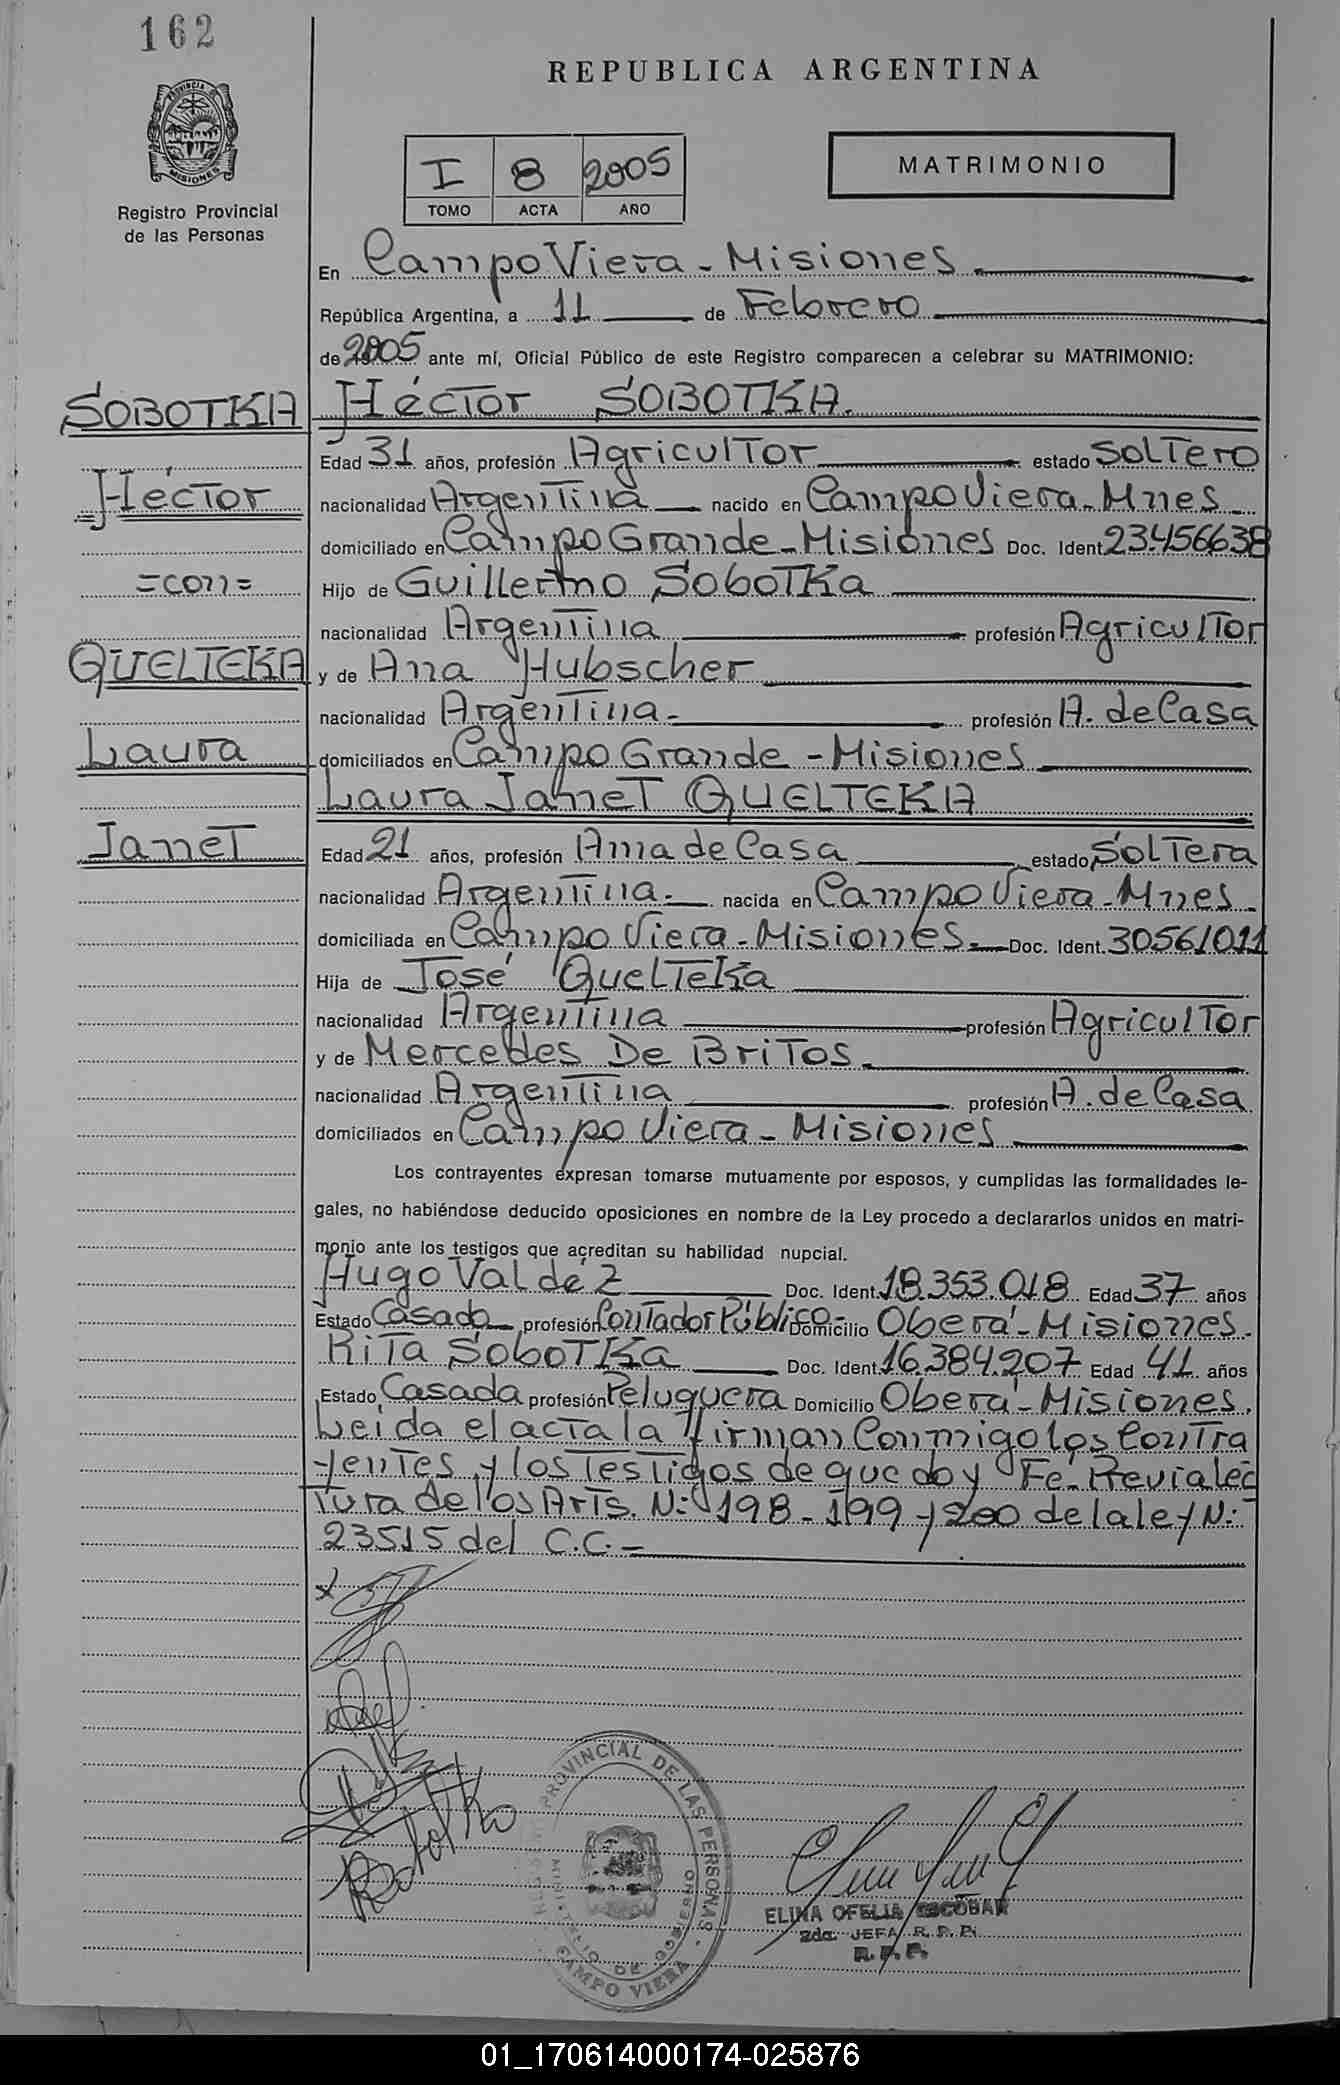 162
REPUBLICA ARGENTINA
PROVINCIA DE
MISIONES
Registro Provincial
de las Personas
I 8 2005
TOMO ACTA AÑO
MATRIMONIO
En Campo Viera - Misiones
República Argentina, a 11 de Febrero
de 2005 ante mí, Oficial Público de este Registro comparecen a celebrar su MATRIMONIO:
SOBOTKA Héctor SOBOTKA.
Edad 31 años, profesión Agricultor estado Soltero
Héctor nacionalidad Argentina nacido en Campo Viera - Mnes
domiciliado en Campo Grande - Misiones Doc. Ident. 23.456638
=con= Hijo de Guillermo Sobotka
nacionalidad Argentina profesión Agricultor
QUELTEKA y de Ana Hubscher
nacionalidad Argentina - profesión A. de Casa
Laura domiciliados en Campo Grande - Misiones
Laura Janet QUELTEKA
Janet Edad 21 años, profesión Ama de Casa estado Soltera
nacionalidad Argentina - nacida en Campo Viera - Mnes -
domiciliada en Campo Viera - Misiones - Doc. Ident. 30561011
Hija de José Quelteka
nacionalidad Argentina profesión Agricultor
y de Mercedes De Britos -
nacionalidad Argentina profesión A. de Casa
domiciliados en Campo Viera - Misiones
Los contrayentes expresan tomarse mutuamente por esposos, y cumplidas las formalidades le-
gales, no habiéndose deducido oposiciones en nombre de la Ley procedo a declararlos unidos en matri-
monio ante los testigos que acreditan su habilidad nupcial.
Hugo Valdéz Doc. Ident. 18.353.018 Edad 37 años
Estado Casado profesión Contador Público Domicilio Oberá - Misiones.
Rita Sobotka Doc. Ident. 16.384.207 Edad 41 años
Estado Casada profesión Peluquera Domicilio Oberá - Misiones.
Leida el acta la firman Conmigo los Contra
yentes y los testigos de que doy Fe. Previa lec
tura de los Arts. N: 198 - 199 y 200 de la ley N:
23515 del C.C. -
x
R Sobotka
PROVINCIAL DE LAS PERSONAS
MINISTERIO DE GOBIERNO
CAMPO VIERA
ELINA OFELIA ESCOBAR
2da. JEFA R. P. P.
R. P. P.
01_170614000174-025876